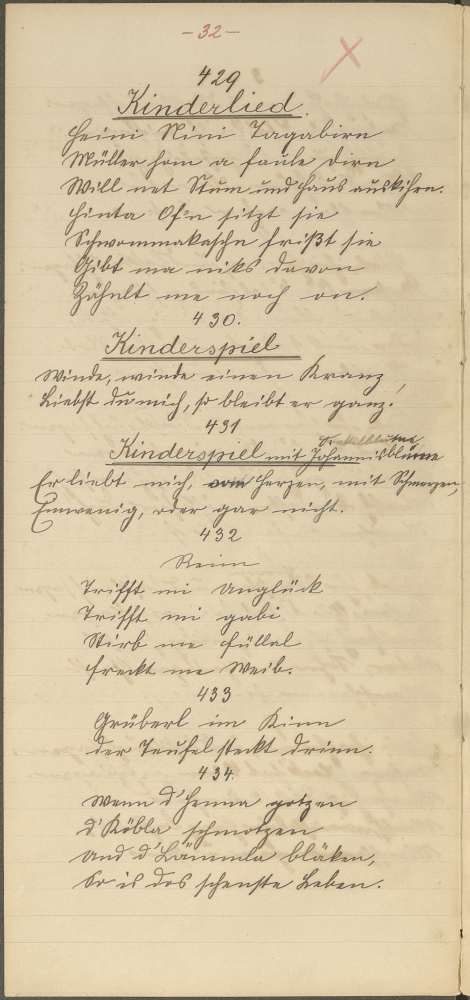 - 32 -
429
Kinderlied.
Heini Nini Tagabirn
Müller hom a faule Dirn
Will net Stum und Haus auskihrn.
Hinta Ofn sitzt sie
Schwommakaschn frißt sie
Gibt ma niks davon
Zähnlt me noch on.
430.
Kinderspiel
Winde, winde einen Kranz,
Liebst du mich, so bleibt er ganz.
431
Kinderspiel mit Johannisblume
Er liebt mich, vom Herzen, mit Schmerzen,
Einwenig, oder gar nicht.
432
Reim
Trifft mi Unglück
Trifft mi gabi
Stirb me Füllal
Freckt me Weib.
433
Grüberl im Kinn
der Teufel steckt drinn.
434.
Wenn d'Henna gotzen
d'Köbla schmotzen
und d'Lämmla bläken,
So is dos schenste Leben.